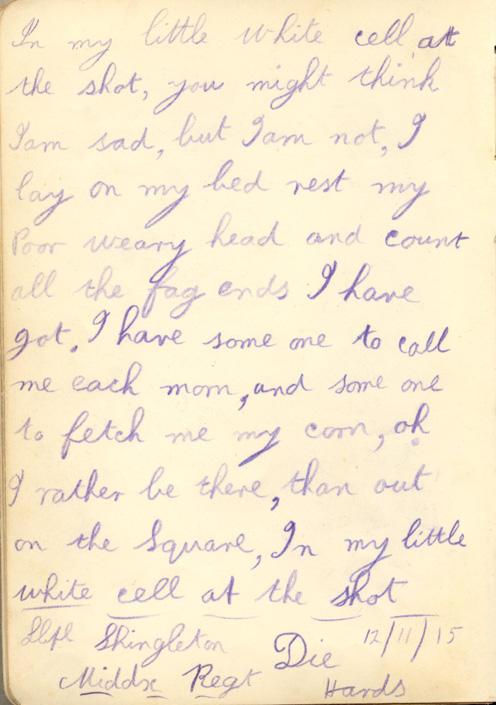 In my little white cell at
the shot, you might think
I am sad, but I am not, I
lay on my bed rest my
Poor weary head and count
all the fag ends I have
got. I have some one to call
me each morn, and some one
to fetch me my corn, oh
I rather be there, than out
on the Square, In my little
white cell at the shot
Shingleton Die 12/11/15
Middsx Regt Hards